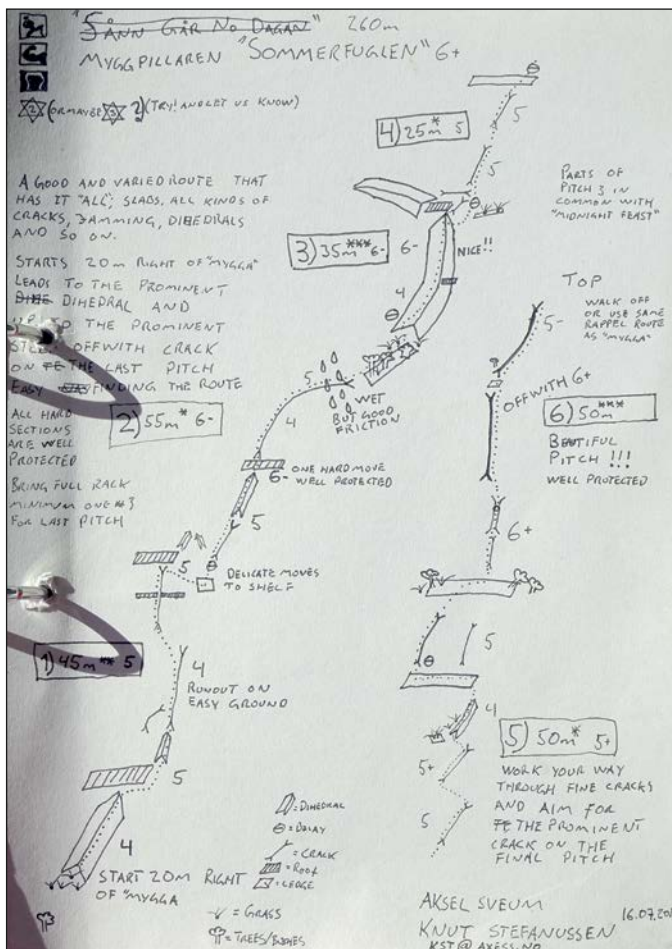 "SÅNN GÅR NO DAGAN" 260m
MYGGPILLAREN "SOMMERFUGLEN" 6+
2 (OR MAYBE 3 ?) (TRY! AND LET US KNOW)
A GOOD AND VARIED ROUTE THAT
HAS IT "ALL", SLABS, ALL KINDS OF
CRACKS, JAMMING, DIHEDRALS
AND SO ON.
STARTS 20m RIGHT OF "MYGGA"
LEADS TO THE PROMINENT
DIHEDRAL AND
UP TO THE PROMINENT
OFFWITH CRACK
ON THE LAST PITCH
EASY FINDING THE ROUTE
ALL HARD
SECTIONS
ARE WELL
PROTECTED
BRING FULL RACK
MINIMUM ONE #3
FOR LAST PITCH
4) 25m* 5
5
5
PARTS OF
PITCH 3 IN
COMMON WITH
"MIDNIGHT FEAST"
3) 35m*** 6-
6-
NICE!!
4
TOP
WALK OFF
OR USE SAME
RAPPEL ROUTE
AS "MYGGA"
5-
OFFWITH 6+
6) 50m***
BEAUTIFUL
PITCH !!!
WELL PROTECTED
6+
2) 55m* 6-
5
WET
BUT GOOD
FRICTION
4
6-
ONE HARD MOVE
WELL PROTECTED
5
5
DELICATE MOVES
TO SHELF
1) 45m** 5
4
RUNOUT ON
EASY GROUND
5
4
START 20m RIGHT
OF "MYGGA
5
4
5+
5
5) 50m* 5+
WORK YOUR WAY
THROUGH FINE CRACKS
AND AIM FOR
THE PROMINENT
CRACK ON THE
FINAL PITCH
= DIHEDRAL
= BELAY
= CRACK
= ROOF
= LEDGE
= GRASS
= TREES/BUSHES
AKSEL SVEUM
16.07.20
KNUT STEFANUSSEN
KST@AXESS.NO